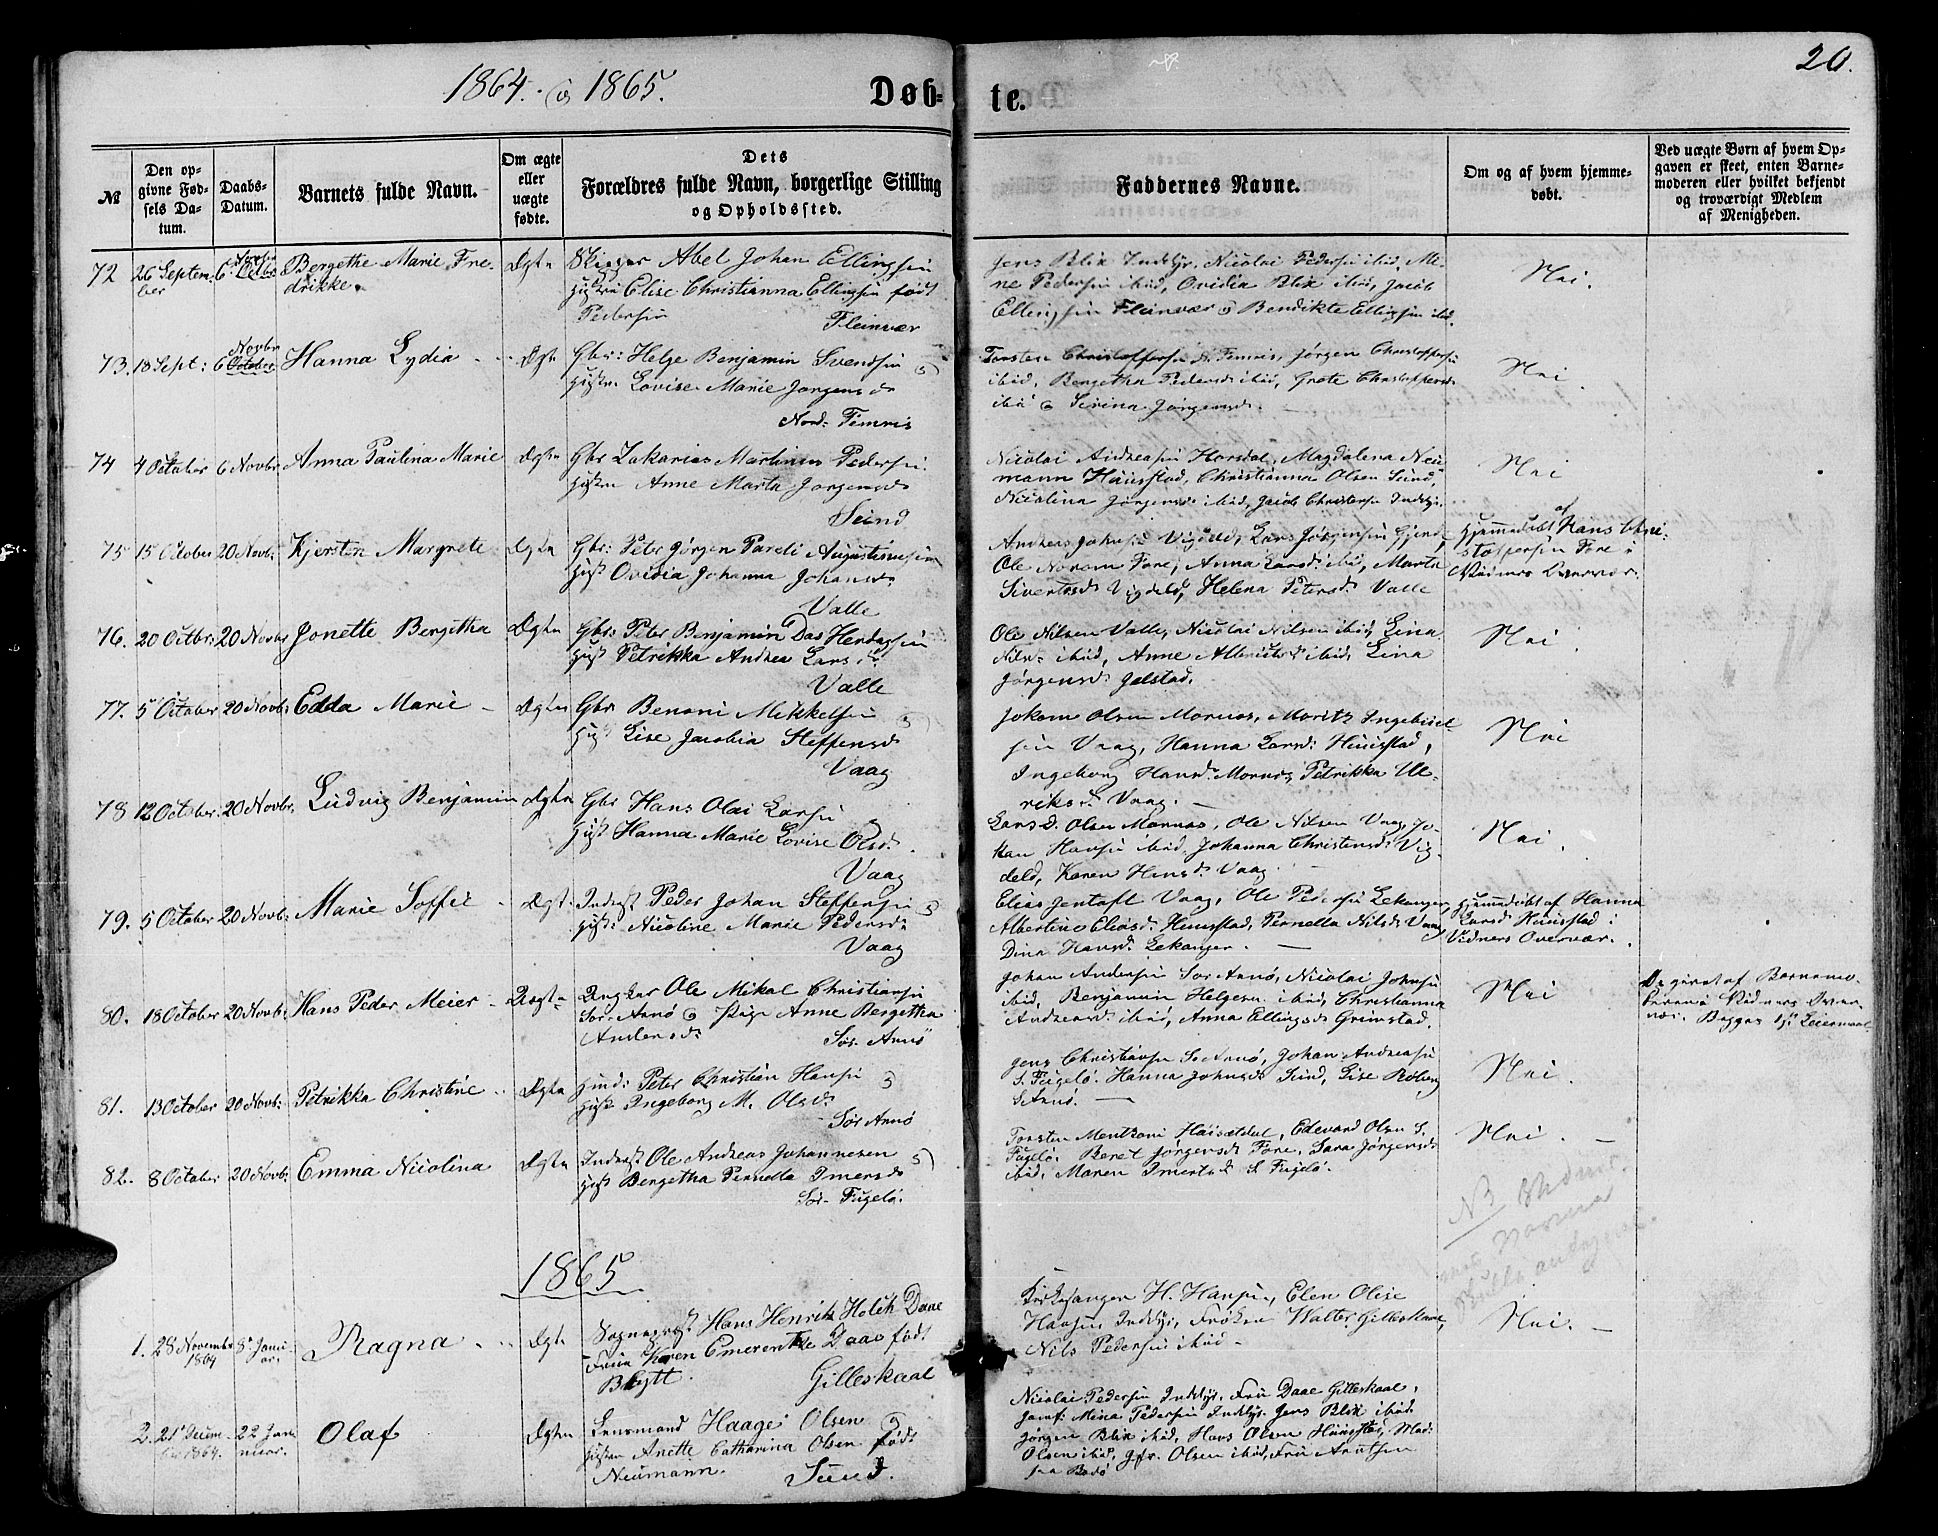 1864. & 1865.
Døb-
te.
20.
№
Den op-
givne Fød-
sels Da-
tum.
Daabs-
Datum.
Barnets fulde Navn.
Om ægte
eller
uægte
fødte.
Dets
Forældres fulde Navn, borgerlige Stilling
og Opholdssted.
Faddernes Navne.
Om og af hvem hjemme-
døbt.
Ved uægte Børn af hvem Op-
gaven er skeet, enten Barne-
moderen eller hvilket bekjendt
og troværdigt Medlem
af Menigheden.
72 26 Septem-
ber
6 Novbr
Bergethe Marie Fre-
drikke.
Ægte
Abel Johan Ellingsen
Elise Christianna Ellingsen født
Pedersen
Fleinvær
Jens Blix Indyr, Nicolai Pedersen ibid, Mi-
ne Pedersen ibid, Ovidia Blix ibid, Jacob
Ellingsen Fleinvær & Bendikte Ellingsen ibid.
Nei.
73. 18 Sept: 6 October
Novbr
Hanna Lydia
Ægte
Gbr: Helge Benjamin Svendsen &
Hustru Lovise Marie Jørgensd.
Nord- Femris
Torsten Christoffersen N. Femris, Jørgen Christoffersen
ibid, Bergetha Pedersd ibid, Grete Christoffersd.
ibid & Serina Jørgensd.
Nei.
74 4 October 6 Novbr Anna Paulina Marie Ægte
Gbr Zakarias Martinus Pedersen
Hustru Anne Marta Jørgensd.
Sund
Nicolai Andreasen Horsdal, Magdalena Neu-
mann Haugstad, Christianna Olsen Sund,
Nicolina Jørgensd. ibid, Jacob Christensen Indyr.
Nei
75 15 October 20 Novbr: Kjersten Margrete Ægte
Gbr: Peter Jørgen Pareli Augustinussen
Hust Ovidia Johanna Johansd.
Valle
Andreas Johnsen Vigdeld, Lars Jørgensen
Ole Fore, Anna Larsd: ibid, Marta
Sivertsd. Vigdeld, Helena Petersd. Valle
Hjemmedøbt af Hans Chri-
stoffersen Fore i
Vidners Overvær.
76. 20 Octbr: 20 Novbr Jonette Bergitha Ægte
Gbr: Peter Benjamin Das Herdagsen
Hust Petrikka Andrea Larsd.
Valle
Ole Nilsen Valle, Nicolai Nilsen ibid, Lina
Nilsd. ibid, Anne Albrigtsd ibid, Lina
Jørgensd. Jelstad.
Nei.
77. 5 October 20 Novbr: Edda Marie - Ægte
Gbr Benoni Mikkelsen &
Hust Lise Jacobia Steffensd.
Vaag
Jokom Olsen Mornes, Moritz Ingebrigt-
sen Vaag, Hanna Larsd: Haugstad,
Ingeborg Hansd. Mornes, Petrikka Ul-
riksd. Vaag.
Nei
78 12 October. 20 Novbr. Ludvig Benjamin Ægte
Gbr Hans Olai Larsen &
Hust Hanna Marie Lovise Olsd.
Vaag
Larsd. Olsen Mornes, Ole Nilsen Vaag, Jo-
han Hansen ibid, Johanna Christensd: Vig-
deld, Karen Hansd. Vaag
Nei.
79. 5 October 20 Novbr: Marie Soffie - Ægte
Indrst Peder Johan Steffensen &
Hust: Nicoline Marie Pedersd.
Vaag
Elias Jentoft Vaag, Ole Pedersen Lekanger
Albertine Eliasd. Haugstad, Pernella Nilsd. Vaag
Dina Hansd. Lekanger.
Hjemmedøbt af Hanna
Larsd Haugstad i
Vidners Overvær.
80. 18 October 20 Novbr: Hans Peder Meier - Uægte
Ungkar Ole Mikal Christiansen
Sør- Arnø & Pige Anne Bergetha
Andersd.
Sør- Arnø
Johan Andersen Sør Arnø, Nicolai Johnsen
ibid, Benjamin Helgesen ibid, Christianna
Andreasd. ibid, Anna Ellingsd. Grimstad.
Nei
Opgivet af Barnemo-
deren i Vidners Over-
vær. Begges 1ste Leiermaal
81. 13 October 20 Novbr: Petrikka Christine Ægte
Huusm: Peter Christian Hansen &
Hust Ingeborg M. Olsd:
Sør Arnø
Jens Christiansen S. Arnø, Johan Andreasen
S. Fugelø. Hanna Johnsd. Sund, Lise
S. Arnø.
Nei.
82. 8 October 20 Novbr: Emma Nicolina Ægte
Indrst Ole Andreas Johannesen &
Hust Bergetha Pernella Imersd.
Sør- Fugelø.
Torsten Mentzoni, Edevard Olsen S.
Fugelø. Beret Jørgensd. Fore, Sara Jørgensd.
ibid, Maren Imertsd. S. Fugelø.
Nei.
NB
1865
1. 28 Novembr
1864
8de Janu-
ari
Ragna
Ægte
Sognepræst Hans Henrik Holch Daae
Frue Karen Emerentze Daae født
Blytt.
Gilleskaal
Kirkesanger H. Hansen, Elen Olise
Hansen Indyr, Frøken Walter Gilleskaal,
Nils Pedersen ibid -
Nei.
2. 21de Decem-
ber 1864.
22 Jan-
nuar.
Olaf
Ægte
Lensmand Haage Olsen &
Hustru Anette Catharina Olsen født
Neumann.
Sund.
Nicolai Pedersen Indyr, Fru Daae Gilleskaal,
Jomf: Mina Pedersen Indyr, Jens Blix ibid.
Jørgen Blix ibid, Hans Olsen Haugstad, Mad:
Olsen ibid, Jfr. Olsen ibid, Fru Knutsen
fra Bodø